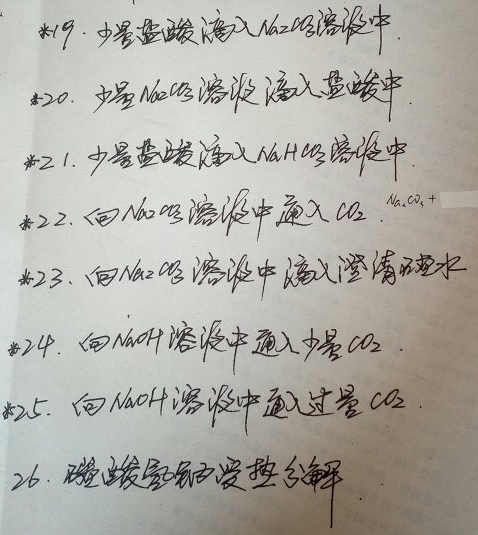 *19. 少量盐酸滴入Na2CO3溶液中.
*20. 少量Na2CO3溶液滴入盐酸中.
*21. 少量盐酸滴入NaHCO3溶液中.
*22. 向Na2CO3溶液中通入CO2. Na2CO3 +
*23. 向Na2CO3溶液中滴入澄清石灰水
*24. 向NaOH溶液中通入少量CO2.
*25. 向NaOH溶液中通入过量CO2.
26. 碳酸氢钠受热分解